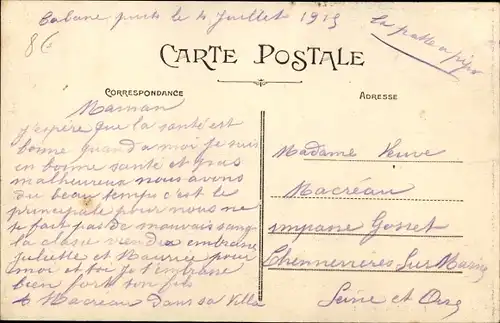 Cabane puits le 4 Juillet 1915
8€
La patte a pipo
CARTE POSTALE
CORRESPONDANCE
ADRESSE
Maman
j'espère que la santé est
bonne quand a moi je suis
en bonne santé et pas
malheureux nous avons
du beau temps c'est le
principale pour nous ne
te fait pas de mauvais sang
la classe viendra embrasse
juliette et Maurice pour
moi et toi je t'embrasse
bien fort ton fils
Macreau dans sa Villa
Madame Veuve
Macréau
impasse Gosset
Chennevières Sur Marne
Seine et Oise